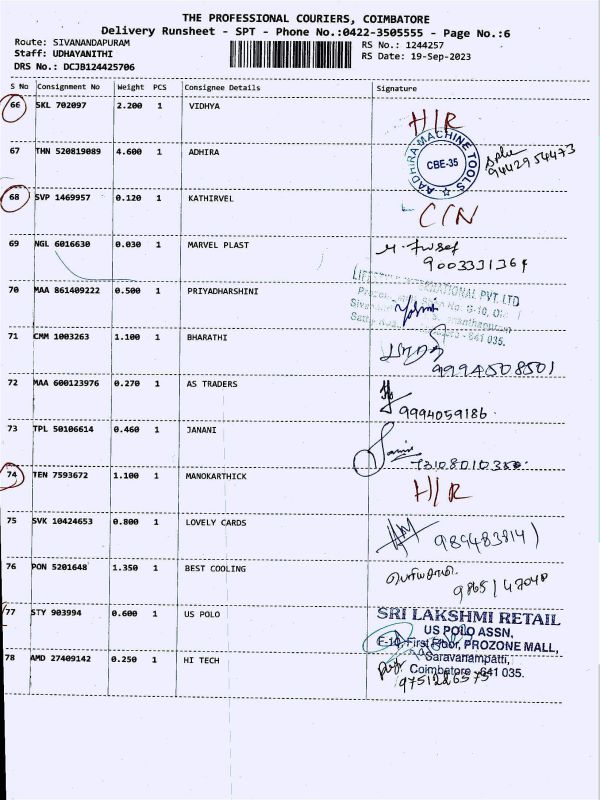 THE PROFESSIONAL COURIERS, COIMBATORE
Delivery Runsheet - SPT - Phone No.:0422-3505555 - Page No.:6
Route: SIVANANDAPURAM RS No.: 1244257
Staff: UDHAYANITHI RS Date: 19-Sep-2023
DRS No.: DCJB124425706
S No Consignment No Weight PCS Consignee Details Signature
66 SKL 702097 2.200 1 VIDHYA H/R
67 THN 520819089 4.600 1 ADHIRA AADHIRA MACHINE TOOLS CBE-35 9442954473
68 SVP 1469957 0.120 1 KATHIRVEL C/N
69 NGL 6016630 0.030 1 MARVEL PLAST
9003331364
70 MAA 861409222 0.500 1 PRIYADHARSHINI INTERNATIONAL PVT. LTD
No. G-10,
641 035.
71 CMM 1003263 1.100 1 BHARATHI
9994508501
72 MAA 600123976 0.270 1 AS TRADERS
9994059186
73 TPL 50106614 0.460 1 JANANI
74 TEN 7593672 1.100 1 MANOKARTHICK H/R
75 SVK 10424653 0.800 1 LOVELY CARDS
76 PON 5201648 1.350 1 BEST COOLING
77 STY 903994 0.600 1 US POLO SRI LAKSHMI RETAIL
US POLO ASSN,
F-10, First Floor, PROZONE MALL,
78 AMD 27409142 0.250 1 HI TECH Saravanampatti,
Coimbatore - 641 035.